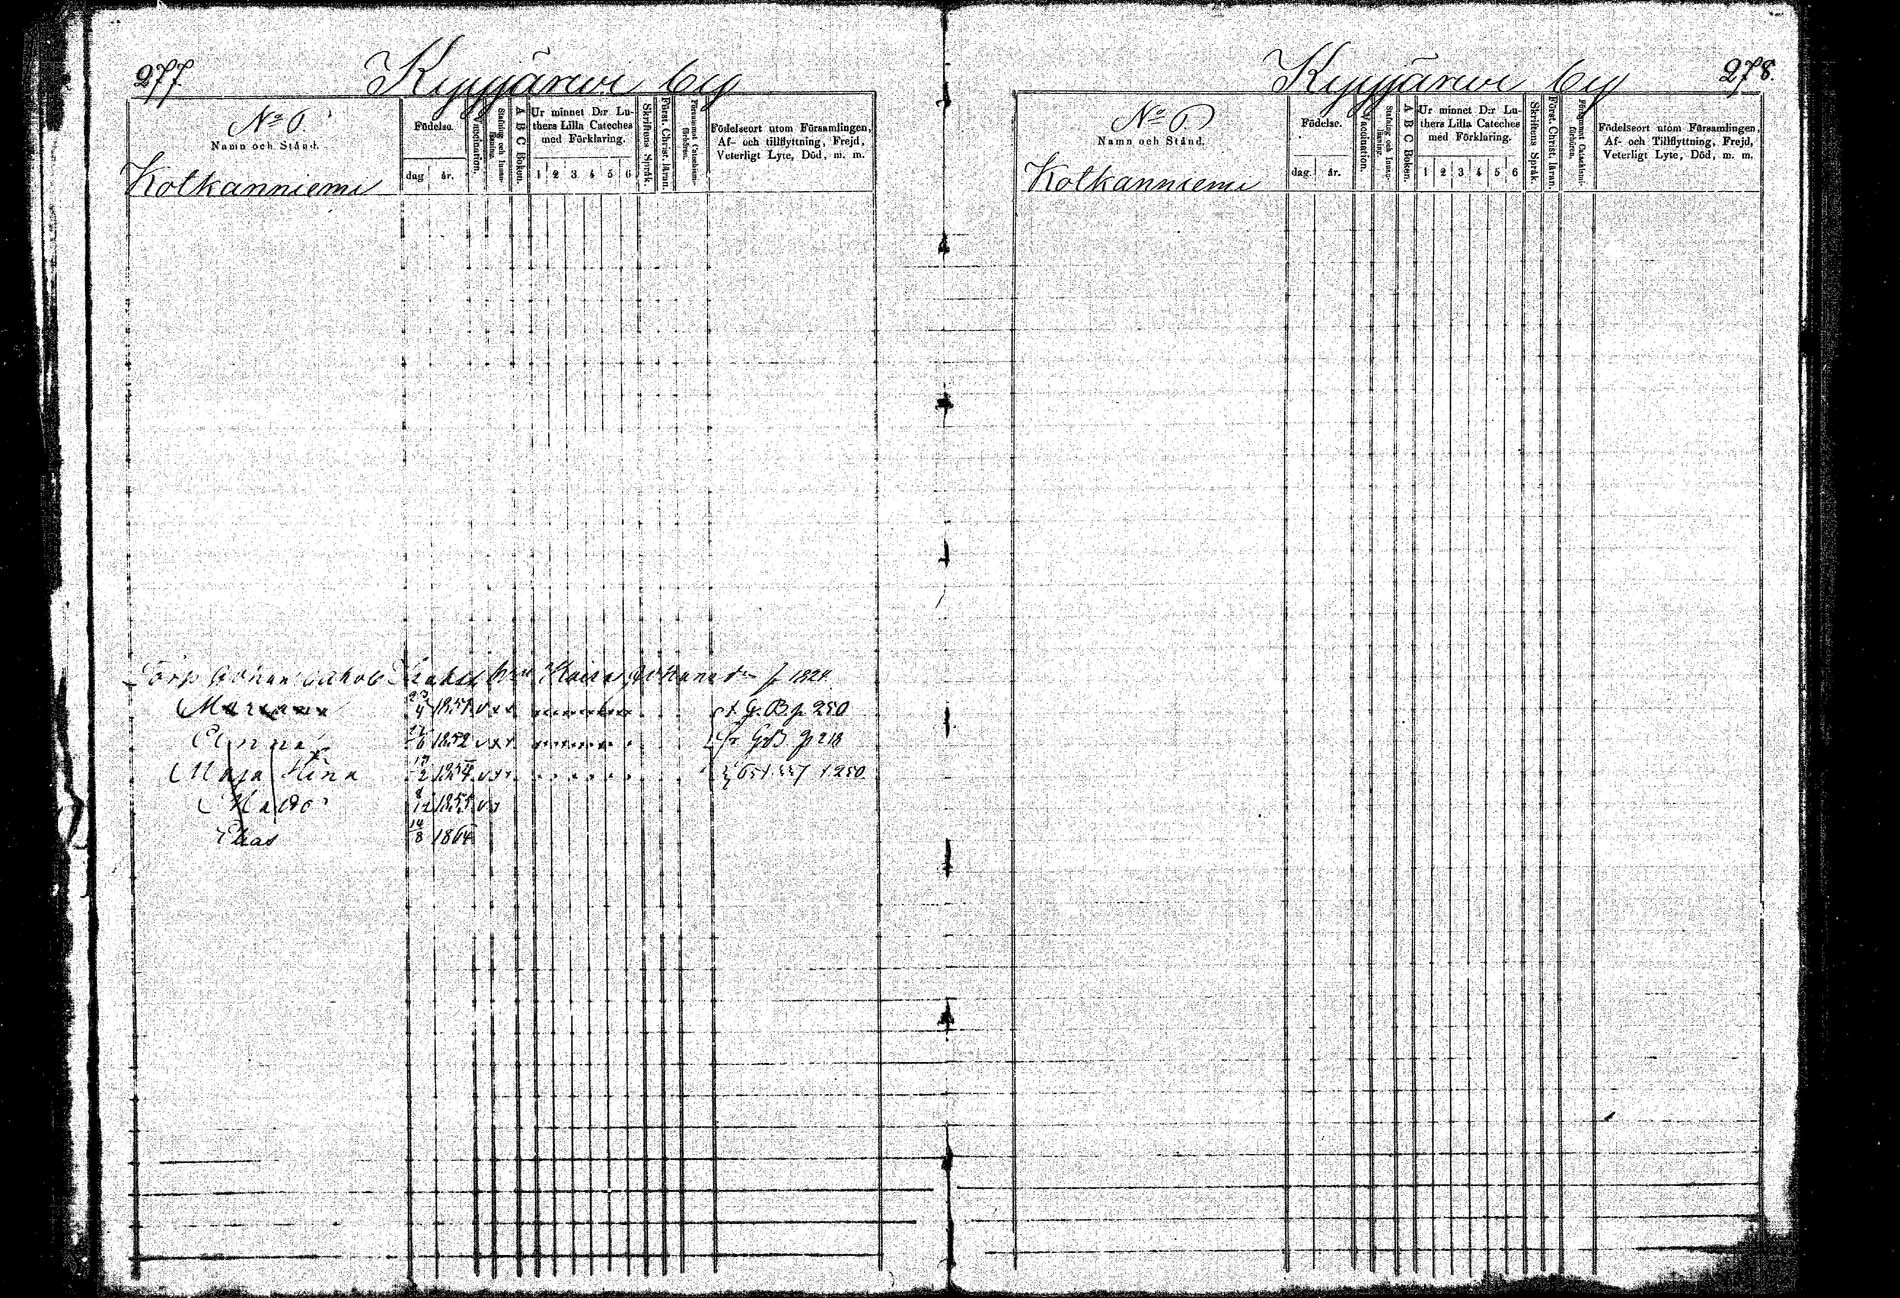 277.
Kyyjärvi by
No 6.
Namn och Stånd.
Födelse.
dag
år.
Vaccination.
Stafning och Innanläsning.
A B C Boken.
Ur minnet D:r Lu-
thers Lilla Cateches
med Förklaring.
1 2 3 4 5 6
Skriftens Språk.
Först. Christ. läran.
Födelseort utom Församlingen,
Af- och tillflyttning, Frejd,
Veterligt Lyte, Död, m. m.
Kotkanniemi
Torp Johan Jakob f 1824
Mariana 23/4 1851 G. B. p 250
Anna 1852 fr GB p 218
Maja Stina 1854 250
8/12 1855
Elias 14/8 1864
Kyyjärvi by
278
No 6.
Namn och Stånd.
Födelse.
dag.
år.
Vaccination.
Stafning och Innanläsning.
A B C Boken.
Ur minnet D:r Lu-
thers Lilla Cateches
med Förklaring.
1 2 3 4 5 6
Skriftens Språk.
Först. Christ. läran.
Födelseort utom Församlingen,
Af- och Tillflyttning, Frejd,
Veterligt Lyte, Död, m. m.
Kotkanniemi